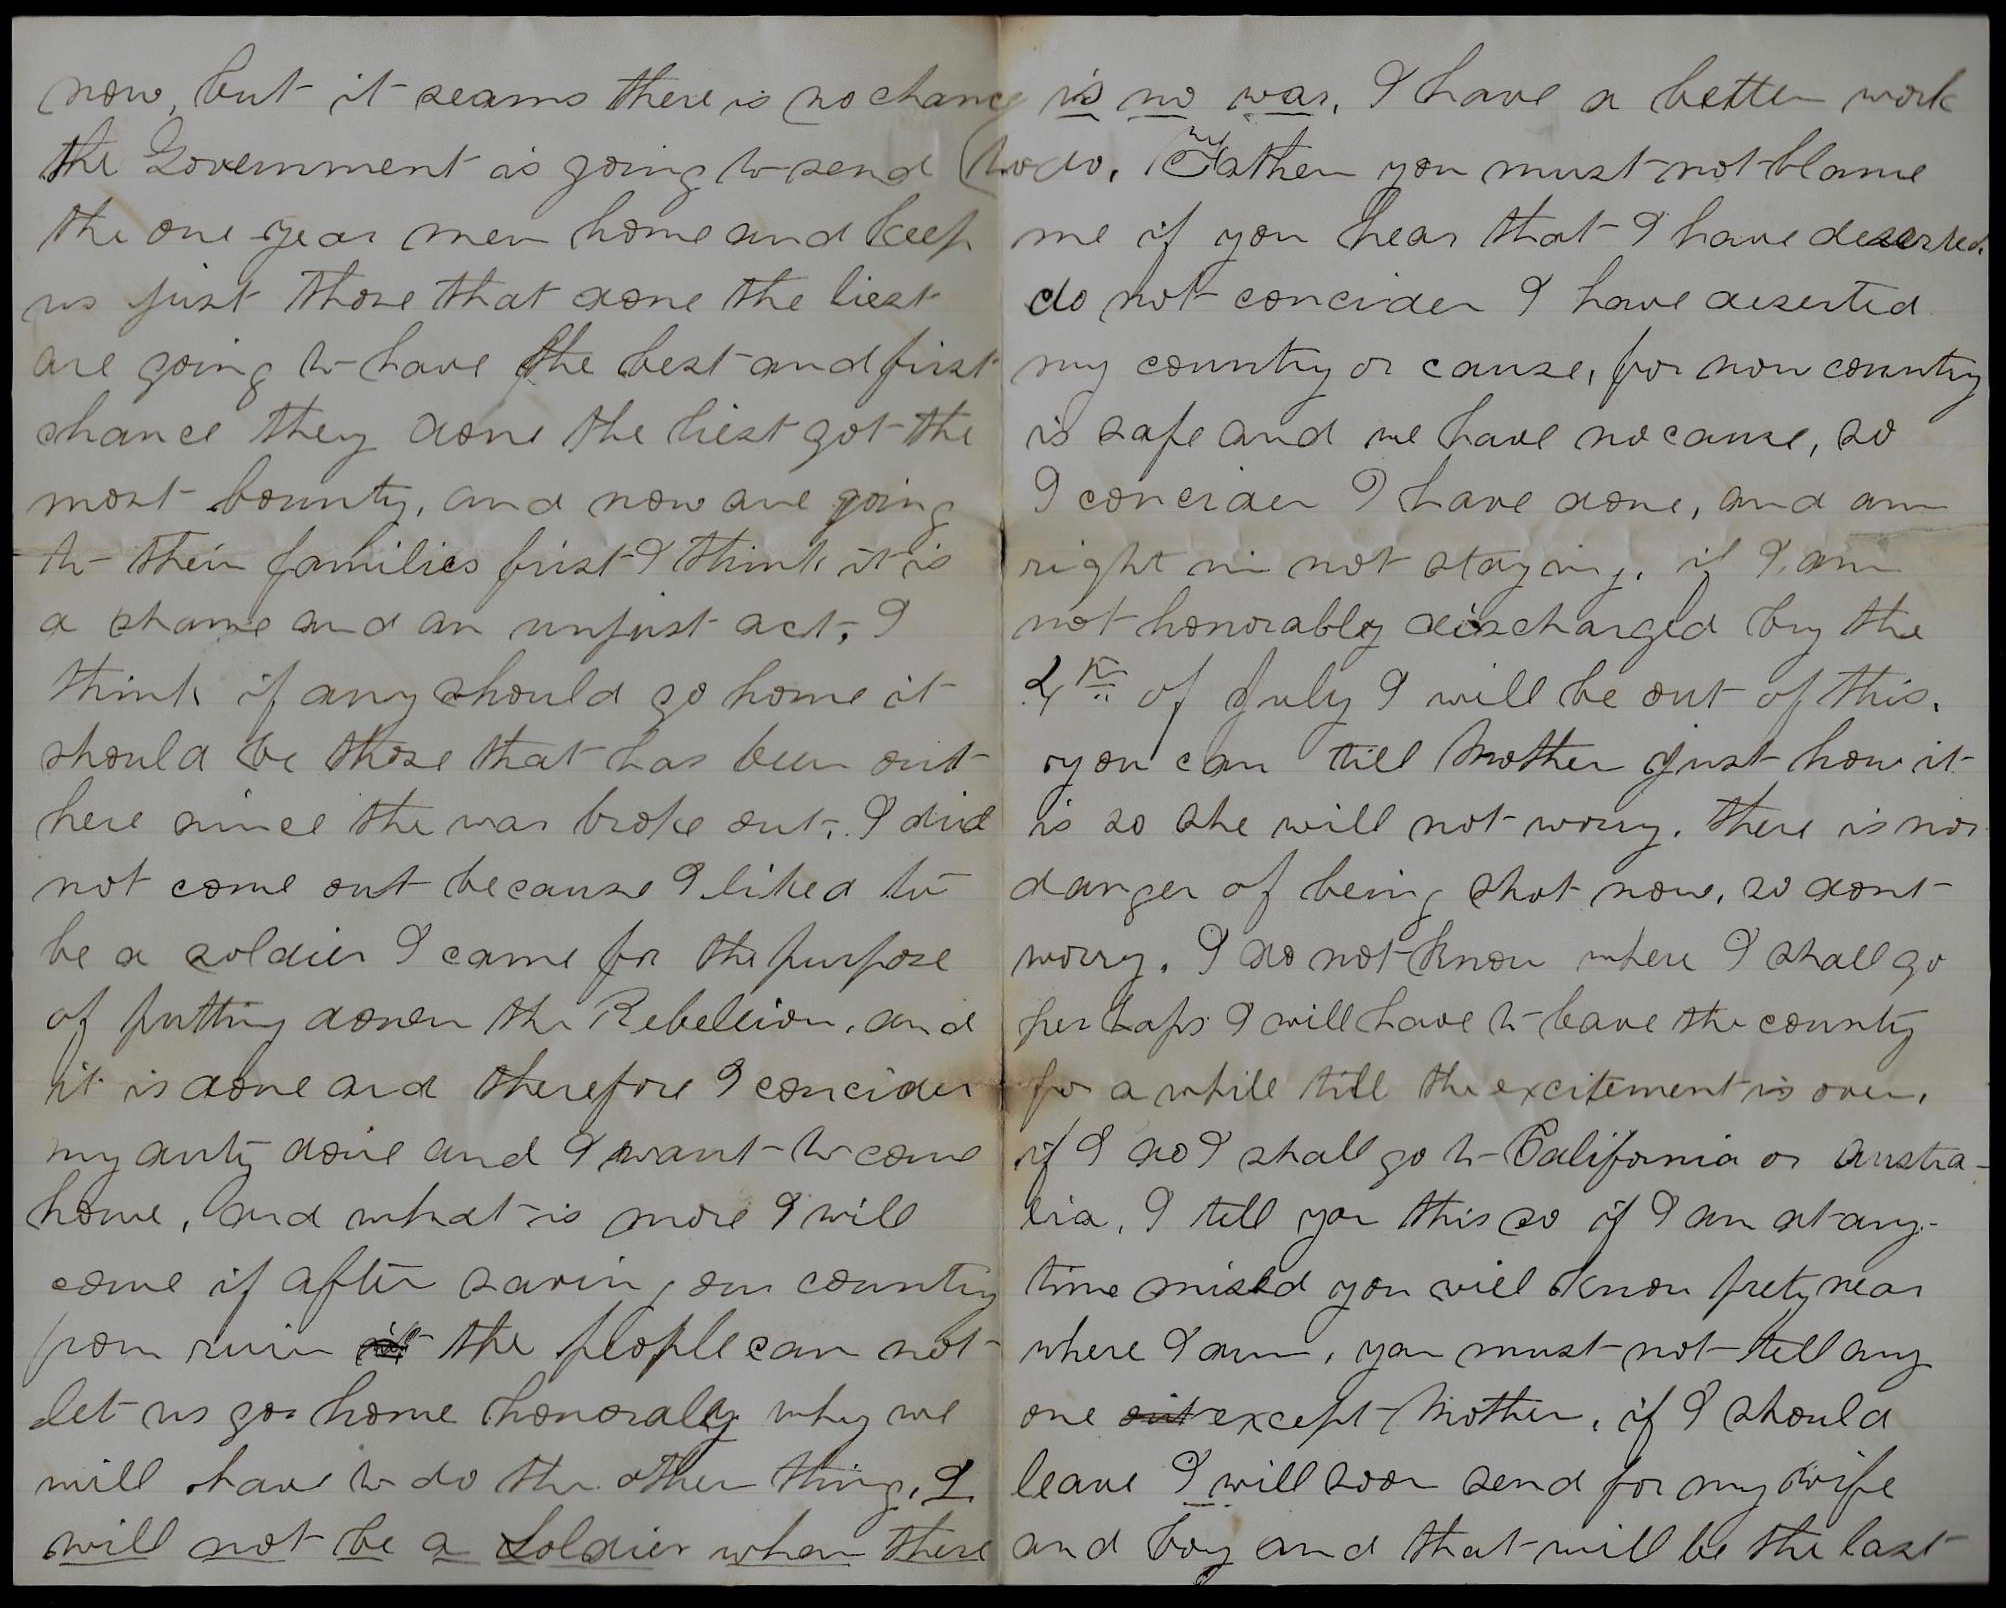 now, but it seams there is no chance
the Government is going to send
the one year men home and keep
us just those that done the liest
are going to have the best and first
chance they done the liest got the
most bounty, and now are going
to their families first I think it is
a shame and an unjust act, I
think if any should go home it
should be those that has been out
here since the war broke out, I did
not come out because I liked to
be a soldier I came for the purpose
of putting down the Rebellion, and
it is done and therefore I concider
my duty done and I want to come
home, and what is more I will
come if after saving our country
from ruin the people can not
let us go home honoraly why we
will have to do the other thing, I
will not be a Soldier when there
is no war, I have a better work
to do, Father you must not blame
me if you hear that I have deserted.
do not concider I have deserted
my country or cause, for now country
is safe and we have no cause, so
I concider I have done, and am
right in not staying. if I am
not honorably discharged by the
4th of July I will be out of this.
you can till Mother just how it
is so she will not worry. there is no
danger of being shot now, so dont
worry. I do not know where I shall go
perhaps I will have to leave the county
for a while till the excitement is over,
if I do I shall go to California or Austra-
lia, I tell you this so if I am at any-
time missd you will know prety near
where I am, you must not tell any
one out except Mother, if I should
leave I will soon send for my wife
and boy and that will be the last